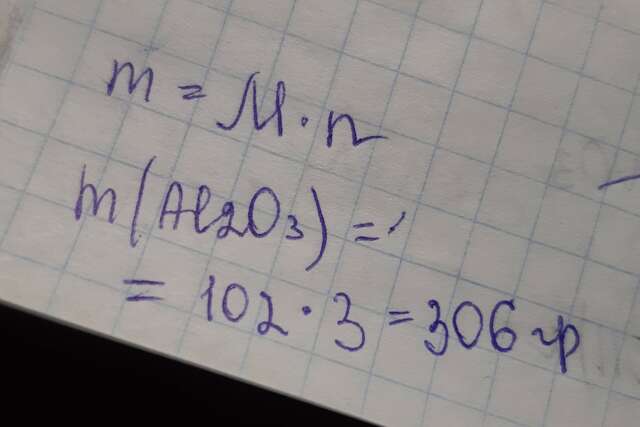 m = M · n
m(Al2O3) =
= 102 · 3 = 306 гр